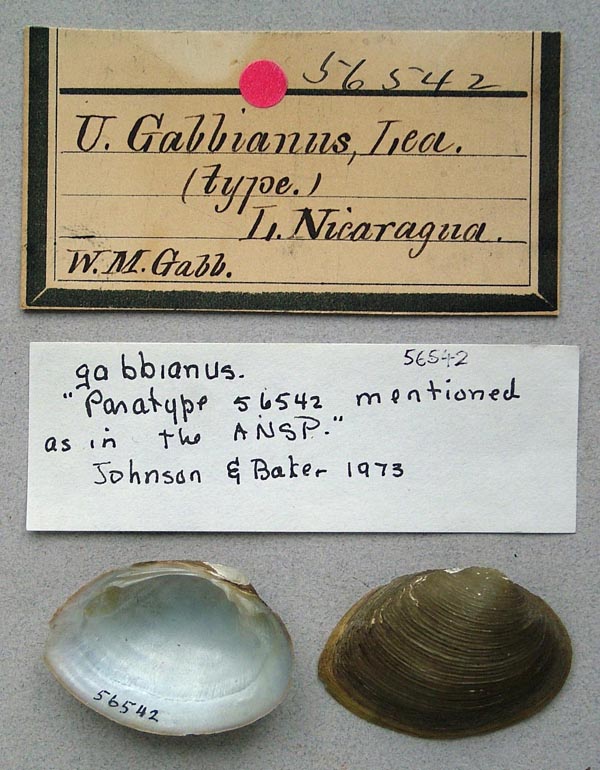 56542
U. Gabbianus, Lea.
(type.)
L. Nicaragua.
W. M. Gabb.
56542
gabbianus.
"Paratype 56542 mentioned
as in the ANSP."
Johnson & Baker 1973
56542